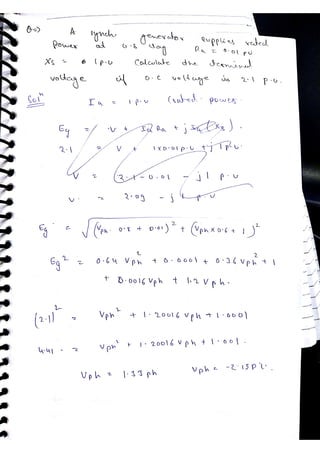 Q=) A synch generator supplies rated
power at 0.8 lag Ra = 0.01 pu
Xs = 1 p.u Calculate the terminal
voltage if o.c voltage is 2.1 p.u.
Solⁿ
Ia = 1 p.u (rated power
Eg = V + Ia Ra + j Ia (Xs).
2.1 = V + 1x0.01 p.u + j 1 p.u.
V = 2.1 - 0.01 - j 1 p.u
V = 2.09 - j 1 p.u
Eg = √(Vph 0.8 + 0.01)² + (Vph x 0.6 + 1)²
Eg² = 0.64 Vph² + 0.0001 + 0.36 Vph² + 1
+ 0.0016 Vph + 1.2 Vph.
(2.1)² = Vph² + 1.20016 Vph + 1.0001
4.41 = Vph² + 1.20016 Vph + 1.001.
Vph = 1.33 ph Vph = -2.15